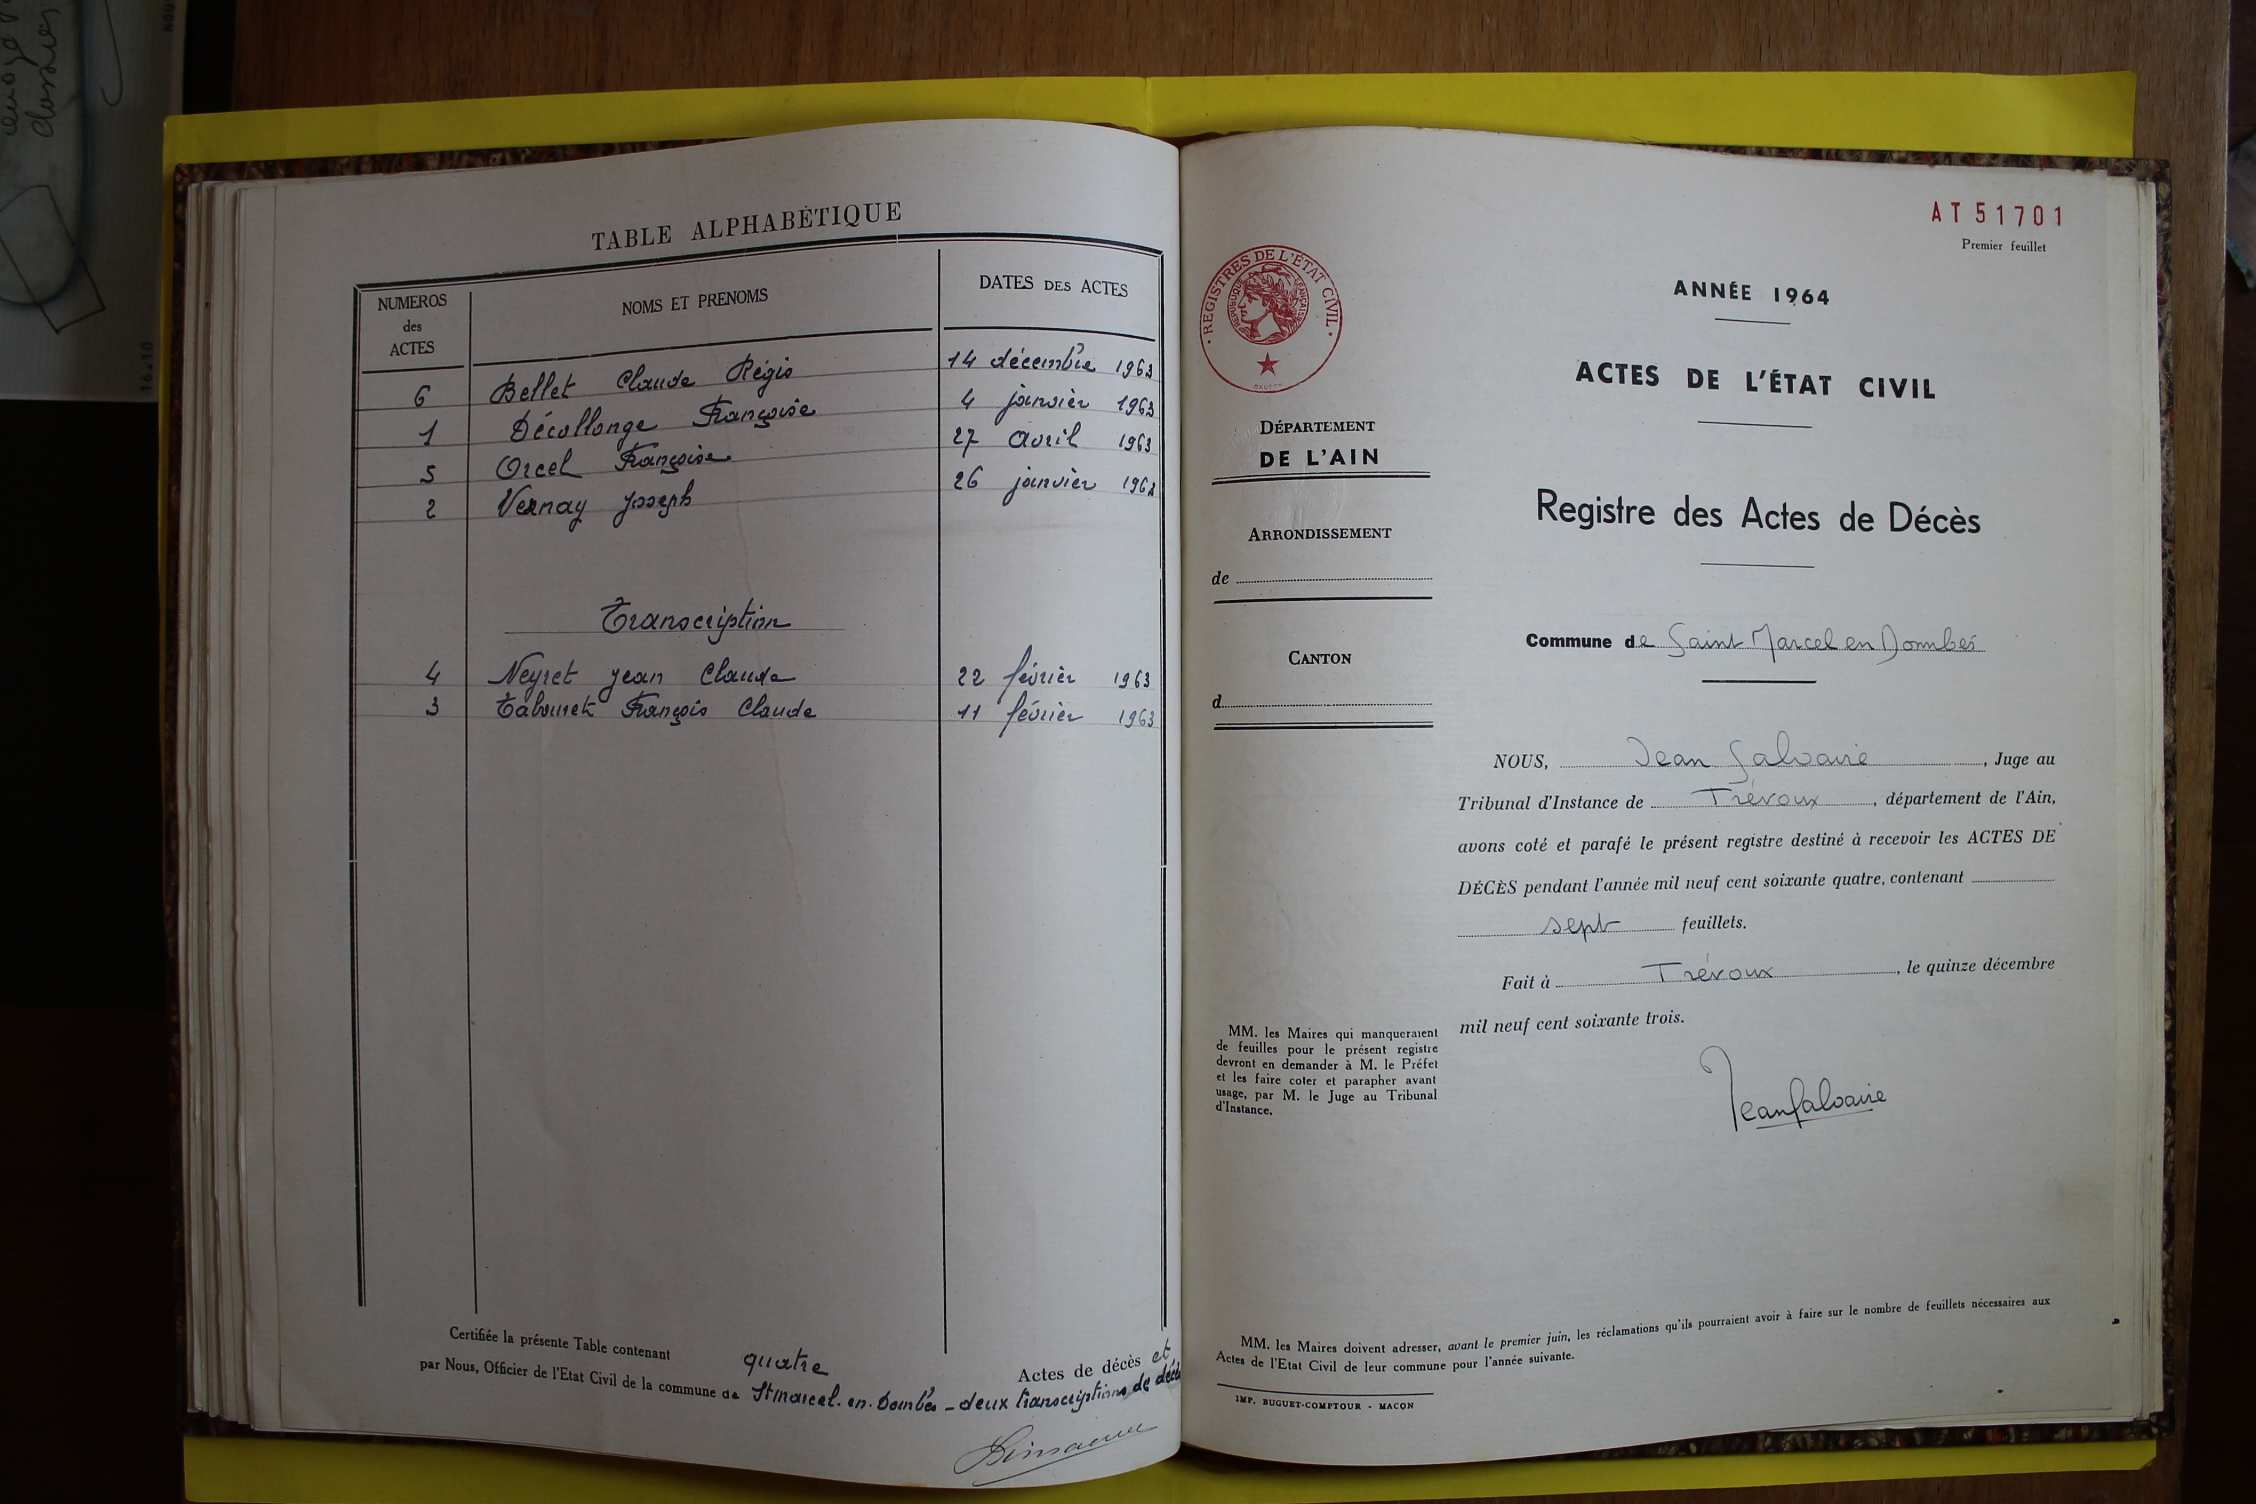 TABLE ALPHABÉTIQUE
NUMEROS des ACTES NOMS ET PRENOMS DATES DES ACTES
6 Bellet Claude Régis 14 décembre 1963
1 Décollonge Françoise 4 janvier 1963
5 Orcel Françoise 27 avril 1963
2 Vernay Joseph 26 janvier 1963
Transcription
4 Neyret Jean Claude 22 février 1963
3 Tabouret François Claude 11 février 1963
Certifiée la présente Table contenant quatre Actes de décès et
par Nous, Officier de l'Etat Civil de la commune de St Marcel-en-Dombes - deux transcriptions de décès
AT 51701
Premier feuillet
REGISTRES DE L'ÉTAT CIVIL
RÉPUBLIQUE FRANÇAISE
ANNÉE 1964
ACTES DE L'ÉTAT CIVIL
DÉPARTEMENT
DE L'AIN
ARRONDISSEMENT
de
CANTON
d
Registre des Actes de Décès
Commune de Saint Marcel en Dombes
NOUS, Jean Salvaire, Juge au
Tribunal d'Instance de Trévoux, département de l'Ain,
avons coté et parafé le présent registre destiné à recevoir les ACTES DE
DÉCÈS pendant l'année mil neuf cent soixante quatre, contenant
sept feuillets.
Fait à Trévoux, le quinze décembre
mil neuf cent soixante trois.
Jean Salvaire
MM. les Maires qui manqueraient
de feuilles pour le présent registre
devront en demander à M. le Préfet
et les faire coter et parapher avant
usage, par M. le Juge au Tribunal
d'Instance.
MM. les Maires doivent adresser, avant le premier juin, les réclamations qu'ils pourraient avoir à faire sur le nombre de feuillets nécessaires aux
Actes de l'Etat Civil de leur commune pour l'année suivante.
IMP. BUGUET-COMPTOUR - MACON